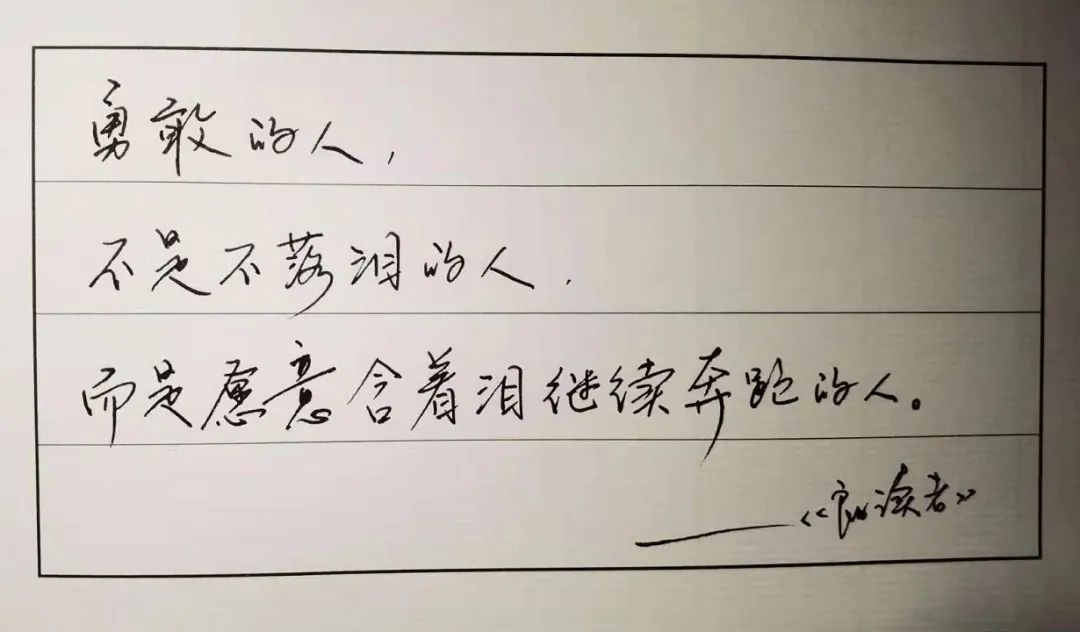 勇敢的人，
不是不落泪的人，
而是愿意含着泪继续奔跑的人。
——《朗读者》